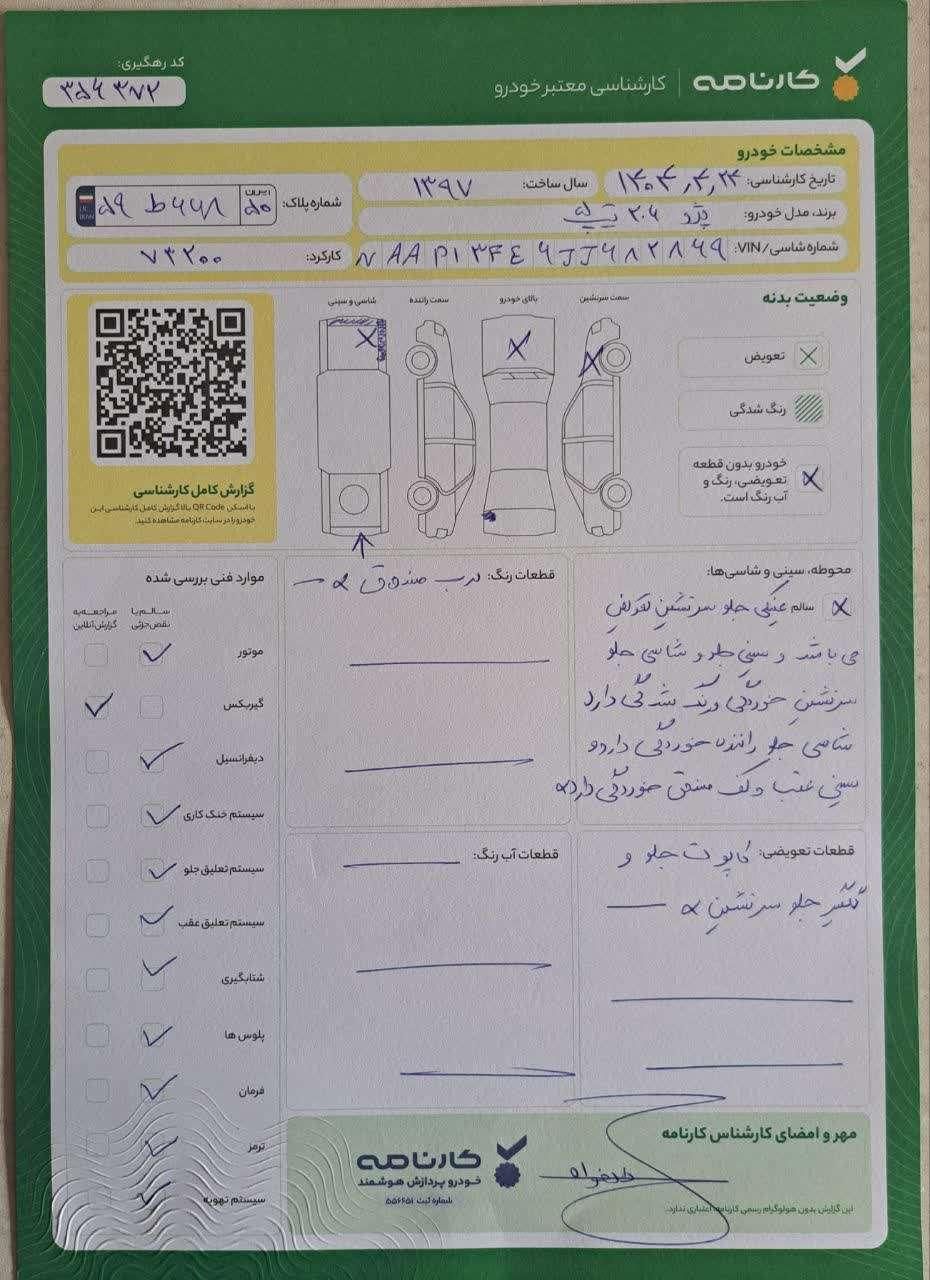 کارنامه | کارشناسی معتبر خودرو
کد رهگیری:
۳۵۶۳۷۲
مشخصات خودرو
تاریخ کارشناسی: ۱۴۰۴,۴,۲۴
سال ساخت: ۱۳۹۷
شماره پلاک: ایران ۵۰
برند، مدل خودرو: پژو ۲۰۶ تیپ ۵
شماره شاسی/VIN:
کارکرد: ۷۳۲۰۰
وضعیت بدنه
سمت سرنشین
بالای خودرو
سمت راننده
شاسی و سینی
تعویض
رنگ شدگی
خودرو بدون قطعه
تعویضی، رنگ و
آب رنگ است.
گزارش کامل کارشناسی
با اسکن QR Code بالا گزارش کامل کارشناسی این
خودرو را در سایت کارنامه مشاهده کنید.
محوطه، سینی و شاسی‌ها:
سالم جلو سرنشین تعویض
می باشد و سینی جلو و شاسی جلو
سرنشین خوردگی و رنگ شدگی دارد
شاسی جلو راننده خوردگی دارد و
سینی عقب و کف صندوق خوردگی دارد
قطعات رنگ: درب صندوق
قطعات تعویضی: کاپوت جلو و
گلگیر جلو سرنشین
قطعات آب رنگ:
موارد فنی بررسی شده
سالم یا
نقص جزئی
مراجعه به
گزارش آنلاین
موتور
گیربکس
دیفرانسیل
سیستم خنک کاری
سیستم تعلیق جلو
سیستم تعلیق عقب
شتابگیری
پلوس ها
فرمان
ترمز
سیستم تهویه
مهر و امضای کارشناس کارنامه
کارنامه
خودرو پردازش هوشمند
شماره ثبت ۵۵۶۶۵۱
این گزارش بدون هولوگرام رسمی کارنامه، اعتباری ندارد.